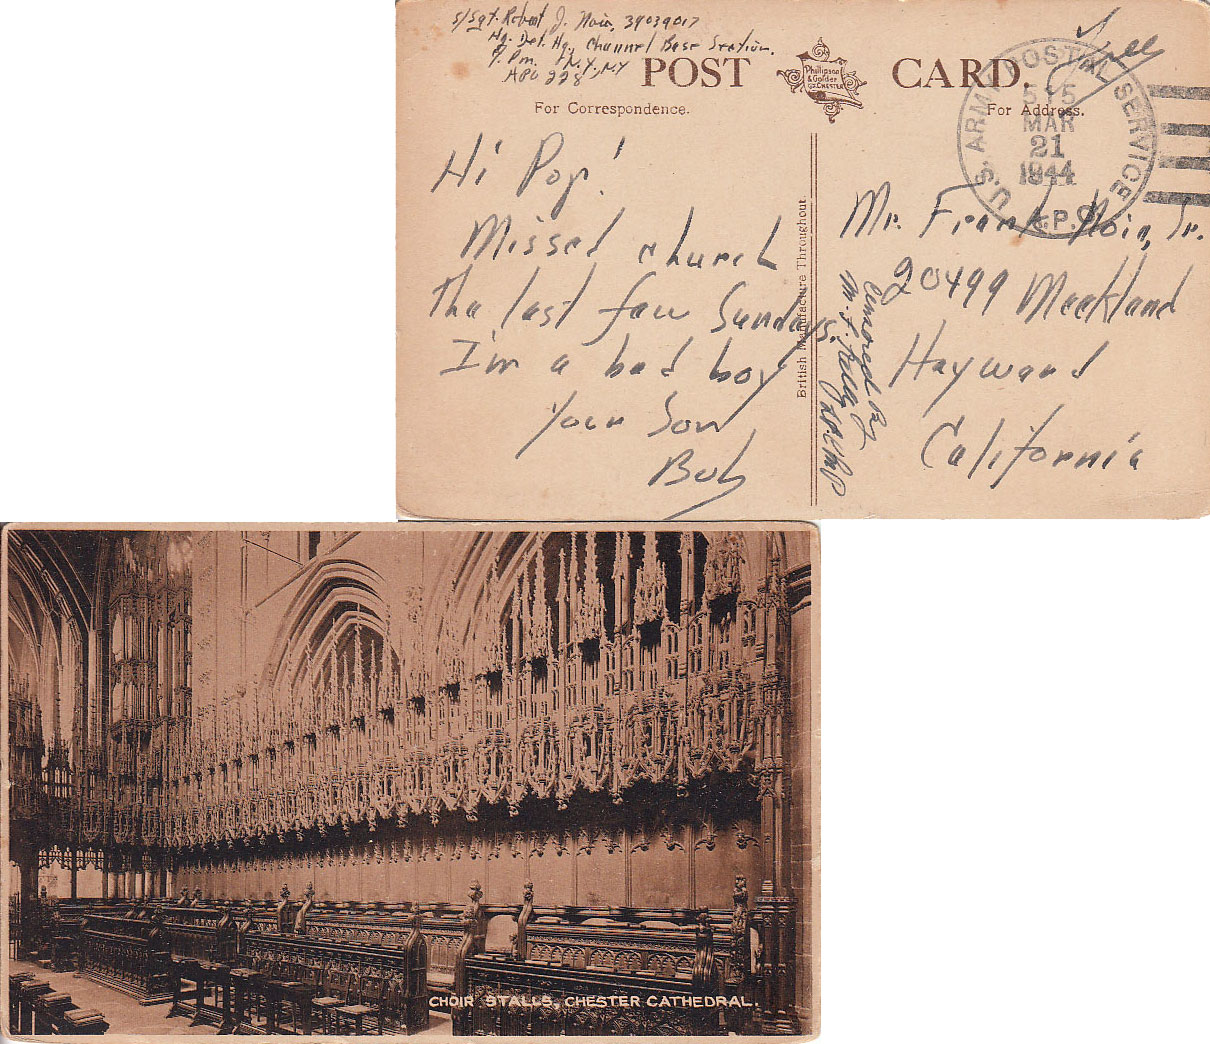 S/Sgt. Robert J. Noia, 39039017
Hq. Det. Hq., Channel Base Section.
A.P.O. 228, N.Y., N.Y.
Free
POST CARD.
Phillipson
& Golder
CHESTER
For Correspondence.
For Address.
U.S. ARMY POSTAL SERVICE
515
MAR
21
1944
A.P.O.
Hi Pop!
Missed church
the last few Sundays.
I'm a bad boy
Your Son
Bob
British Manufacture Throughout.
Censored By
Mr. Frank Noia, Sr.
20499 Meekland
Hayward
California
CHOIR STALLS, CHESTER CATHEDRAL.